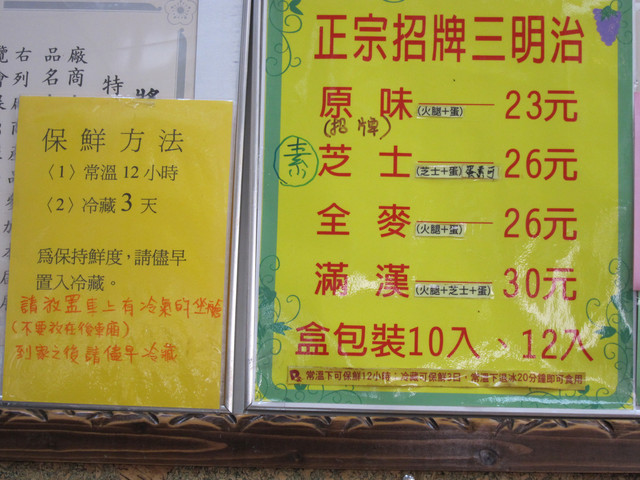 保鮮方法
〈1〉常溫12小時
〈2〉冷藏3天
為保持鮮度，請儘早
置入冷藏。
請放置車上有冷氣的坐艙
(不要放在後車廂)
到家之後請儘早冷藏
正宗招牌三明治
原味(火腿+蛋) 23元
(招牌)
素 芝士(芝士+蛋)蛋素可 26元
全麥(火腿+蛋) 26元
滿漢(火腿+芝士+蛋) 30元
盒包裝10入、12入
常溫下可保鮮12小時；冷藏可保鮮3日，常溫下退冰20分鐘即可食用
右品廠
列名商
特